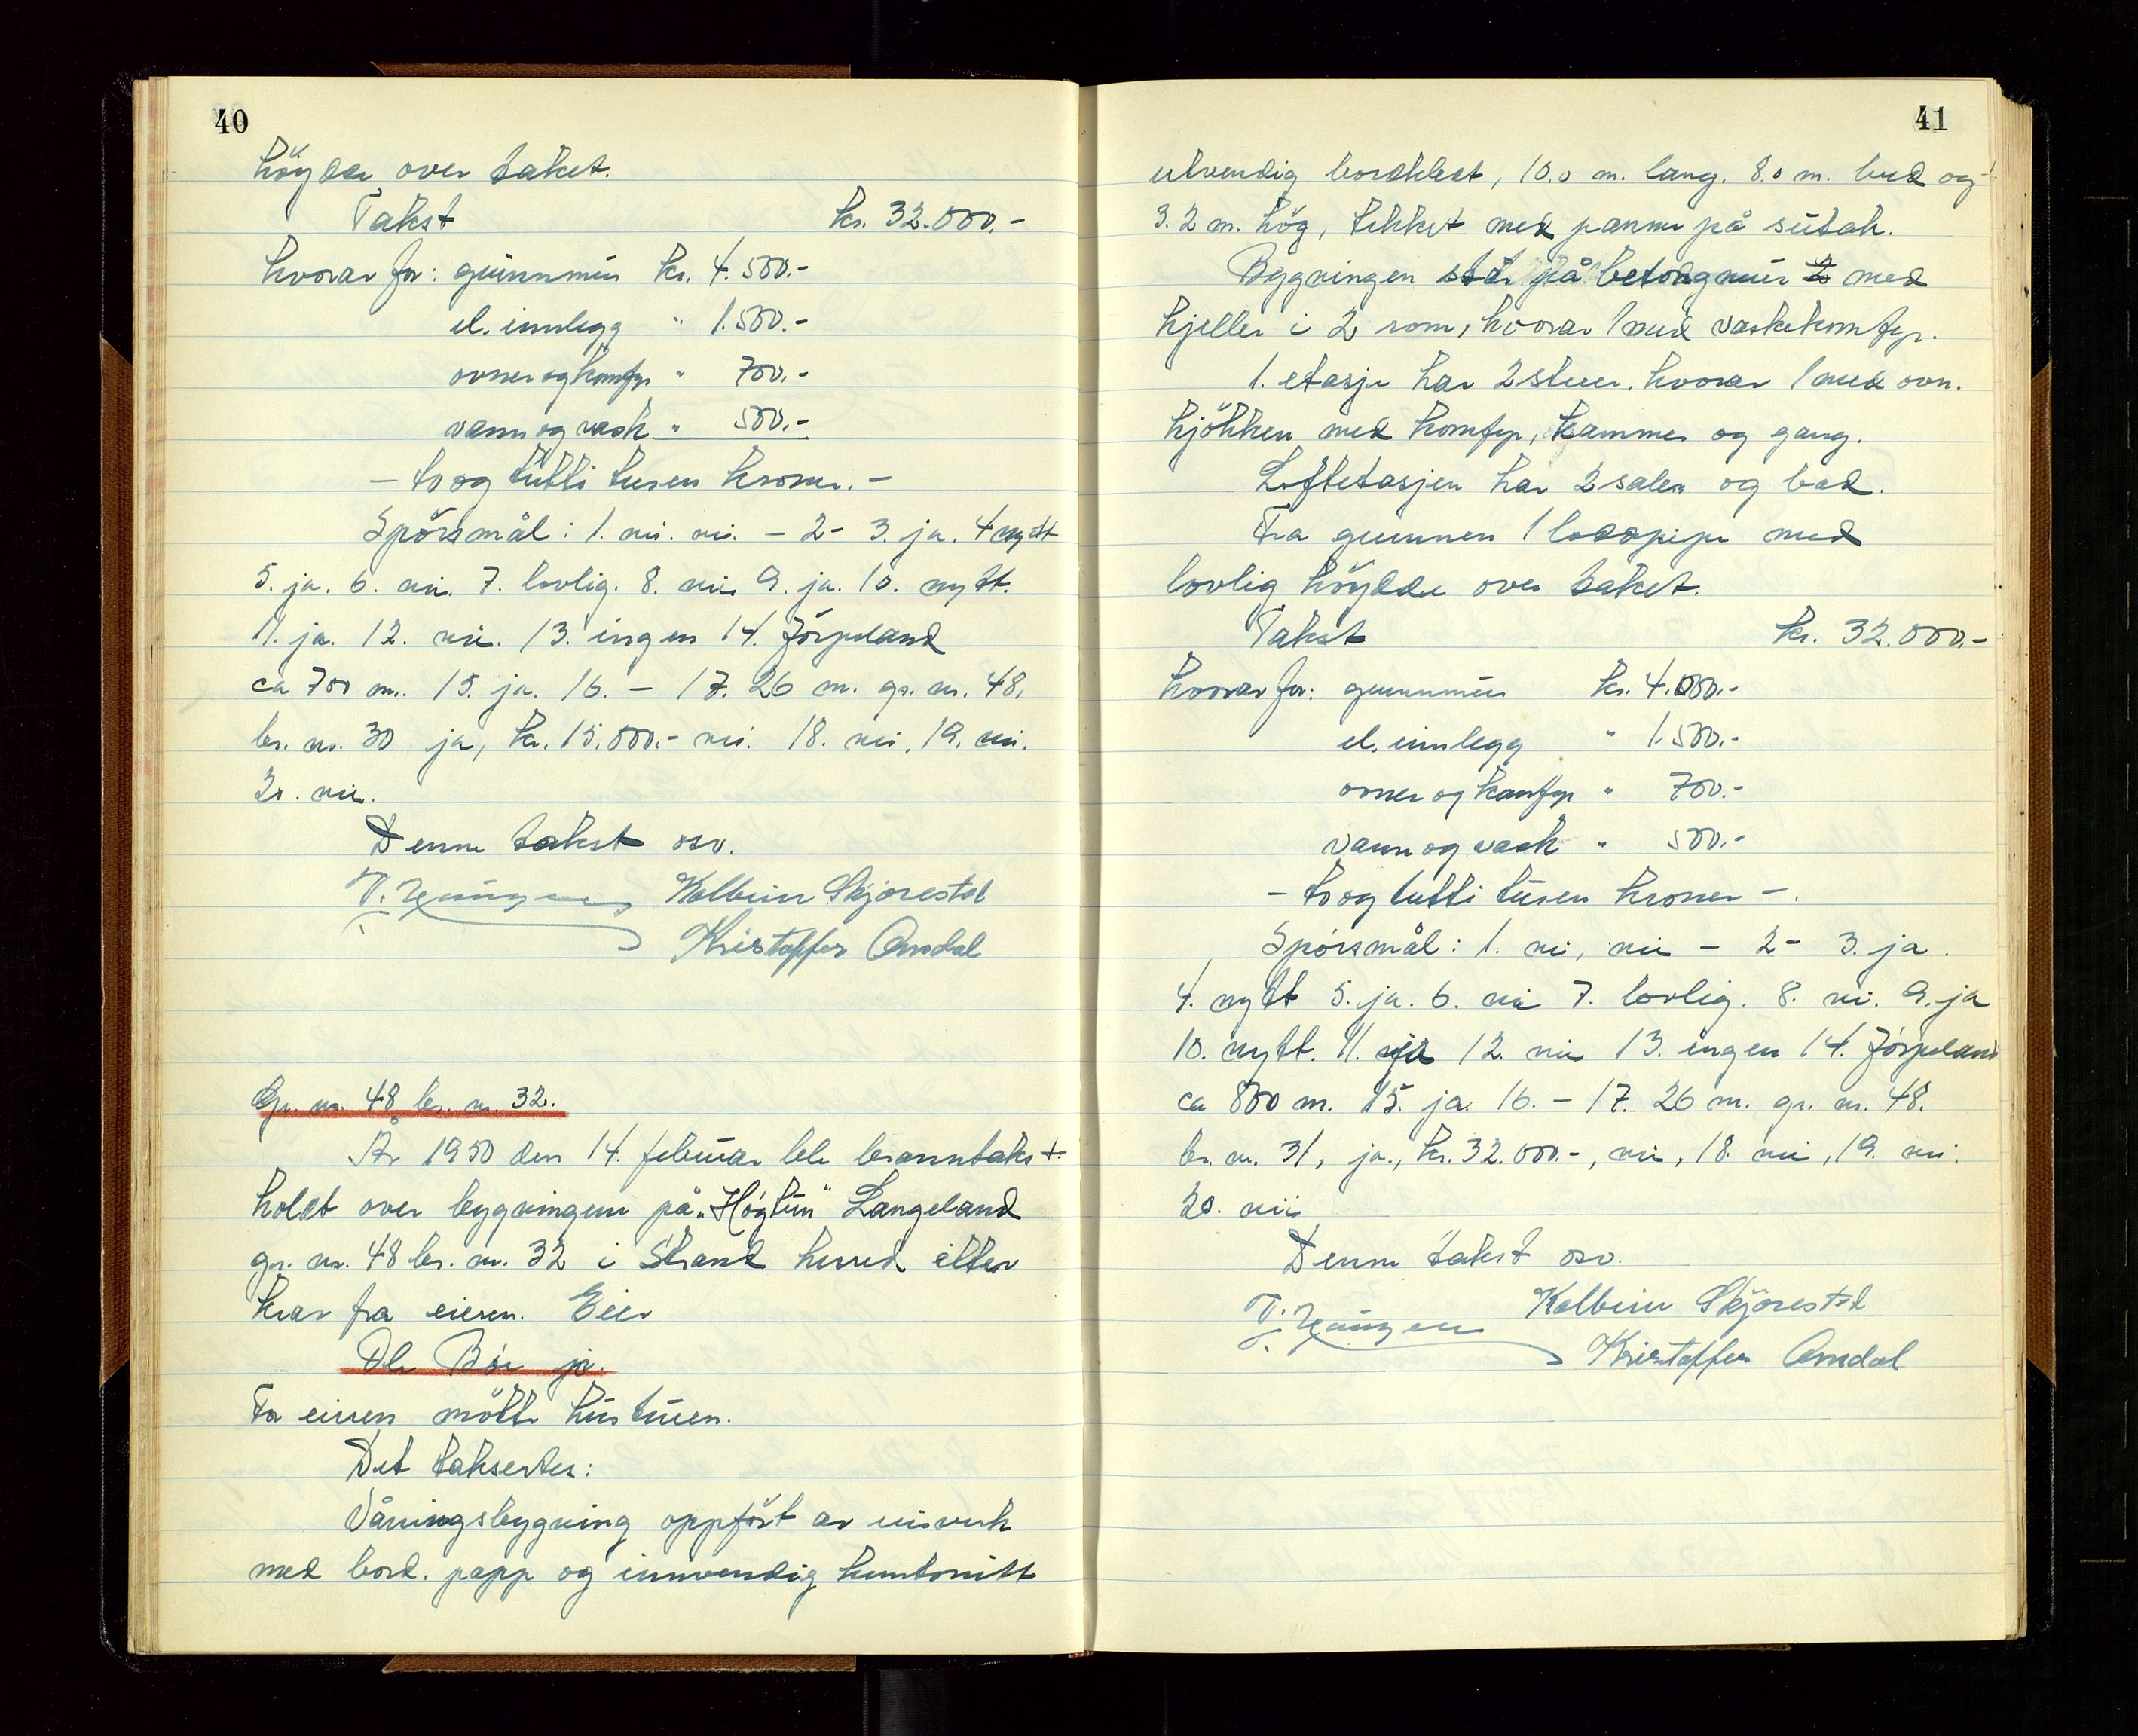 40
höyder over taket.
Takst kr. 32.000.-
hvorav for: grunnmur kr. 4.500.-
el. innlegg " 1.500.-
ovner og komfyr " 700.-
vann og vask " 500.-
- to og tutti tusen kroner. -
Spörsmål: 1. nei. nei. - 2 - 3. ja. 4 nytt
5. ja. 6. nei. 7. lovlig. 8. nei 9. ja. 10. nytt.
11. ja. 12. nei. 13. ingen 14. Jörpeland
ca 700 m. 15. ja. 16. - 17. 26 m. gr. nr. 48,
br. nr. 30 ja, kr. 15.000.- nei. 18. nei, 19. nei.
20. nei.
Denne takst osv.
Kolbein Skjørestad
Kristoffer Amdal
Gr. nr. 48 br. nr. 32.
År 1950 den 14. februar ble branntakst
holdt over bygningene på "Högtun" Langeland
gr. nr. 48 br. nr. 32 i Strand herred etter
krav fra eieren. Eier
Ole Böe jr.
For eieren mötte hustruen.
Det taksertes:
Våningsbygning oppfört av uisverk
med bord. papp og innvendig huntonitt
41
utvendig bordkledt, 10.0 m. lang. 8.0 m. bred og
3.2 m. hög, tekket med panne på sutak.
Bygningen står på betongmur med
kjeller i 2 rom, hvorav 1 med vaskekomfyr.
1. etasje har 2 stuer, hvorav 1 med ovn.
kjökken med komfyr, kammer og gang.
Loftetasjen har 2 saler og bad.
Fra grunnen 1 loddpipe med
lovlig höyder over taket.
Takst kr. 32.000.-
hvorav for: grunnmur kr. 4.000.-
el. innlegg " 1.500.-
ovner og komfyr " 700.-
vann og vask " 500.-
- to og tutti tusen kroner -.
Spörsmål: 1. nei, nei - 2 - 3. ja.
4. nytt 5. ja. 6. nei 7. lovlig. 8. nei. 9. ja
10. nytt. 11. ja 12. nei 13. ingen 14. Jörpeland
ca 800 m. 15. ja. 16. - 17. 26 m. gr. nr. 48.
br. nr. 31, ja, kr. 32.000.-, nei, 18. nei, 19. nei.
20. nei
Denne takst osv.
Kolbein Skjørestad
Kristoffer Amdal